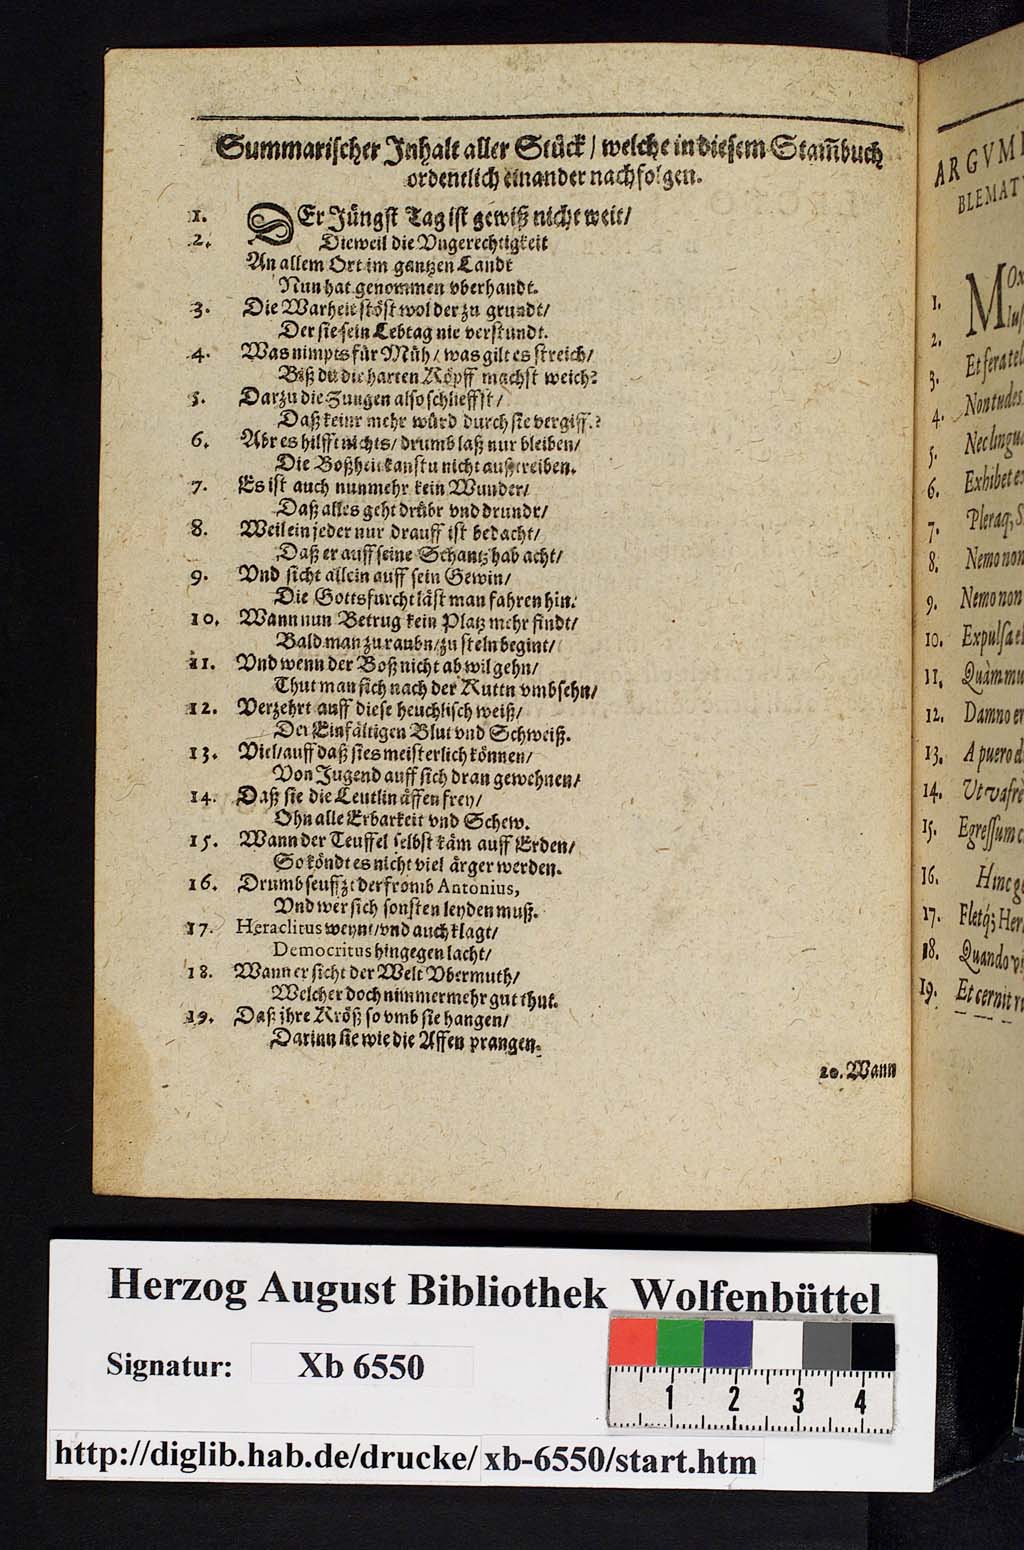 Summarischer Jnhalt aller Stůck / welche in diesem Stam̃buch
ordentlich einander nachfolgen.
1. DEr Jůngst Tag ist gewiß nicht weit /
2. Dieweil die Vngerechtigkeit
An allem Ort im gantzen Landt
Nun hat genommen vberhandt.
3. Die Warheit stőst wol der zu grundt /
Der sie sein Lebtag nie verstundt.
4. Was nimpts fůr Můh / was gilt es streich /
Biß du die harten Kőpff machst weich?
5. Darzu die Zungen also schlieffst /
Daß keinr mehr wůrd durch sie vergiff.?
6. Abr es hilfft nichts / drumb laß nur bleiben /
Die Boßheit kanstu nicht außtreiben.
7. Es ist auch nunmehr kein Wunder /
Daß alles geht drůbr vnd drundr /
8. Weil ein jeder nur drauff ist bedacht /
Daß er auff seine Schantz hab acht /
9. Vnd sicht allein auff sein Gewin /
Die Gottsfurcht låst man fahren hin.
10. Wann nun Betrug kein Platz mehr findt /
Bald man zu raubn / zu steln begint /
11. Vnd wenn der Boß nicht ab wil gehn /
Thut man sich nach der Kuttn vmbsehn /
12. Verzehrt auff diese heuchlisch weiß /
Der Einfåltigen Blut vnd Schweiß.
13. Viel / auff daß sies meisterlich kőnnen /
Von Jugend auff sich dran gewehnen /
14. Daß sie die Leutlin åffen frey /
Ohn alle Erbarkeit vnd Schew.
15. Wann der Teuffel selbst kåm auff Erden /
So kőndt es nicht viel årger werden.
16. Drumb seuffzt der fromb Antonius,
Vnd wer sich sonsten leyden muß.
17. Heraclitus weynt / vnd auch klagt /
Democritus hingegen lacht /
18. Wann er sicht der Welt Vbermuth /
Welcher doch nimmermehr gut thut.
19. Daß jhre Krőß so vmb sie hangen /
Darinn sie wie die Affen prangen.
20. Wann
ARGVM
BLEMAT
1. MOx
2.
3. Et fera
4. Non tudes
5. Nec lingu
6. Exhibet e
7. Pleraq; S
8. Nemo non
9. Nemo non
10. Expulsa e
11. Quàm mu
12. Damno er
13. A puero d
14. Vt vafre
15. Egressum c
16. Hinc ge
17. Fletq́; Her
18. Quando vi
19. Et cernit
Herzog August Bibliothek Wolfenbüttel
Signatur: Xb 6550
1 2 3 4
http://diglib.hab.de/drucke/ xb-6550/start.htm